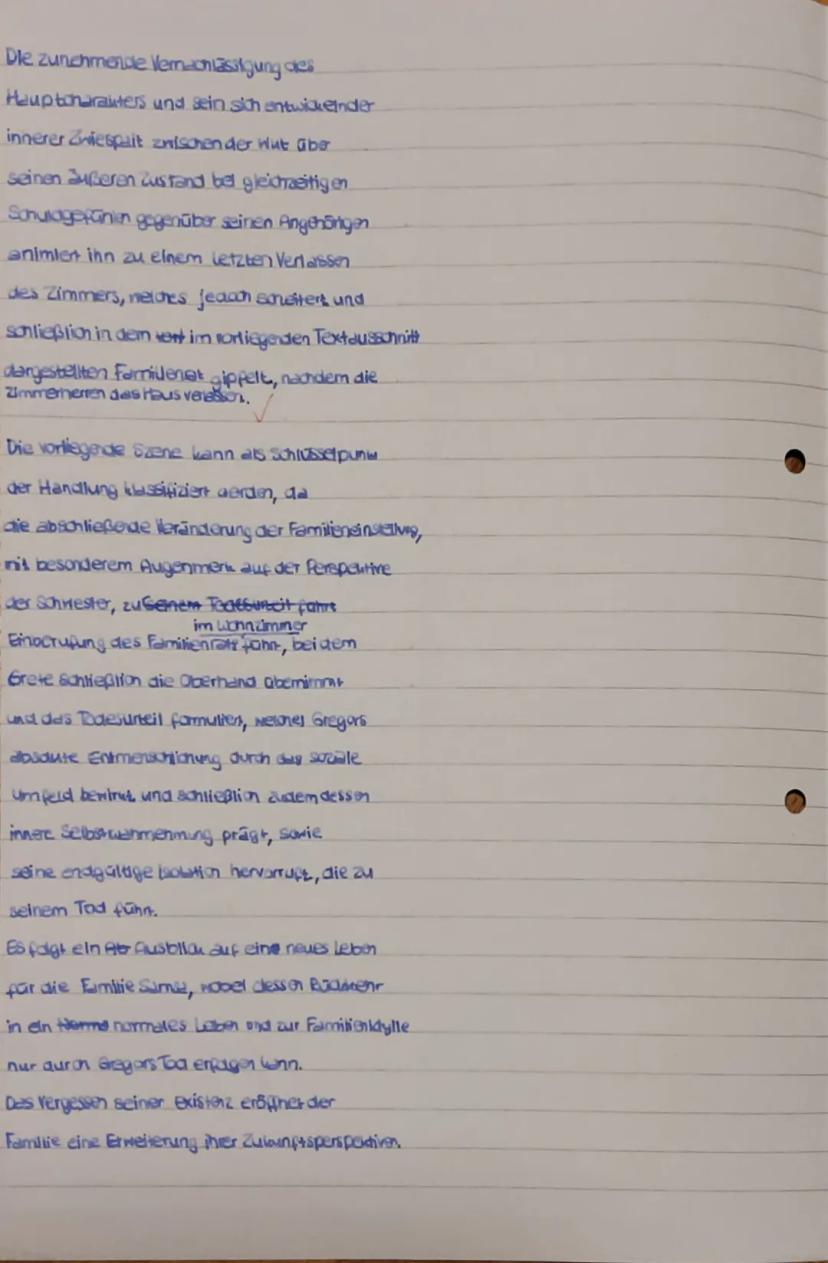 Die zunehmende Vernachlässigung des
Hauptcharakters und sein sich entwickelnder
innerer Zwiespalt zwischen der Wut über
seinen äußeren Zustand bei gleichzeitigen
Schuldgefühlen gegenüber seinen Angehörigen
animiert ihn zu einem letzten Verlassen
des Zimmers, welches jedoch scheitert und
schließlich in dem im vorliegenden Textausschnitt
dargestellten Familienrat gippelt, nachdem die
Zimmerherren das Haus verlassen.
Die vorliegende Szene kann als Schlüsselpunkt
der Handlung klassifiziert werden, da
die abschließende Veränderung der Familieneinstellung,
mit besonderem Augenmerk auf der Perspektive
der Schwester, zu Todesurteil führt
im Wohnzimmer
Einberufung des Familienrats führt, bei dem
Grete schließlich die Oberhand übernimmt
und das Todesurteil formuliert, welches Gregors
absolute Entmenschlichung durch das soziale
Umfeld bewirkt und schließlich zudem dessen
innere Selbstwahrnehmung prägt, sowie
seine endgültige Isolation hervorruft, die zu
seinem Tod führt.
Es folgt ein Ausblick auf eine neues Leben
für die Familie Samsa, wobei dessen Rückkehr
in ein normales Leben und zur Familienidylle
nur durch Gregors Tod erfolgen kann.
Das Vergessen seiner Existenz eröffnet der
Familie eine Erweiterung ihrer Zukunftsperspektiven.